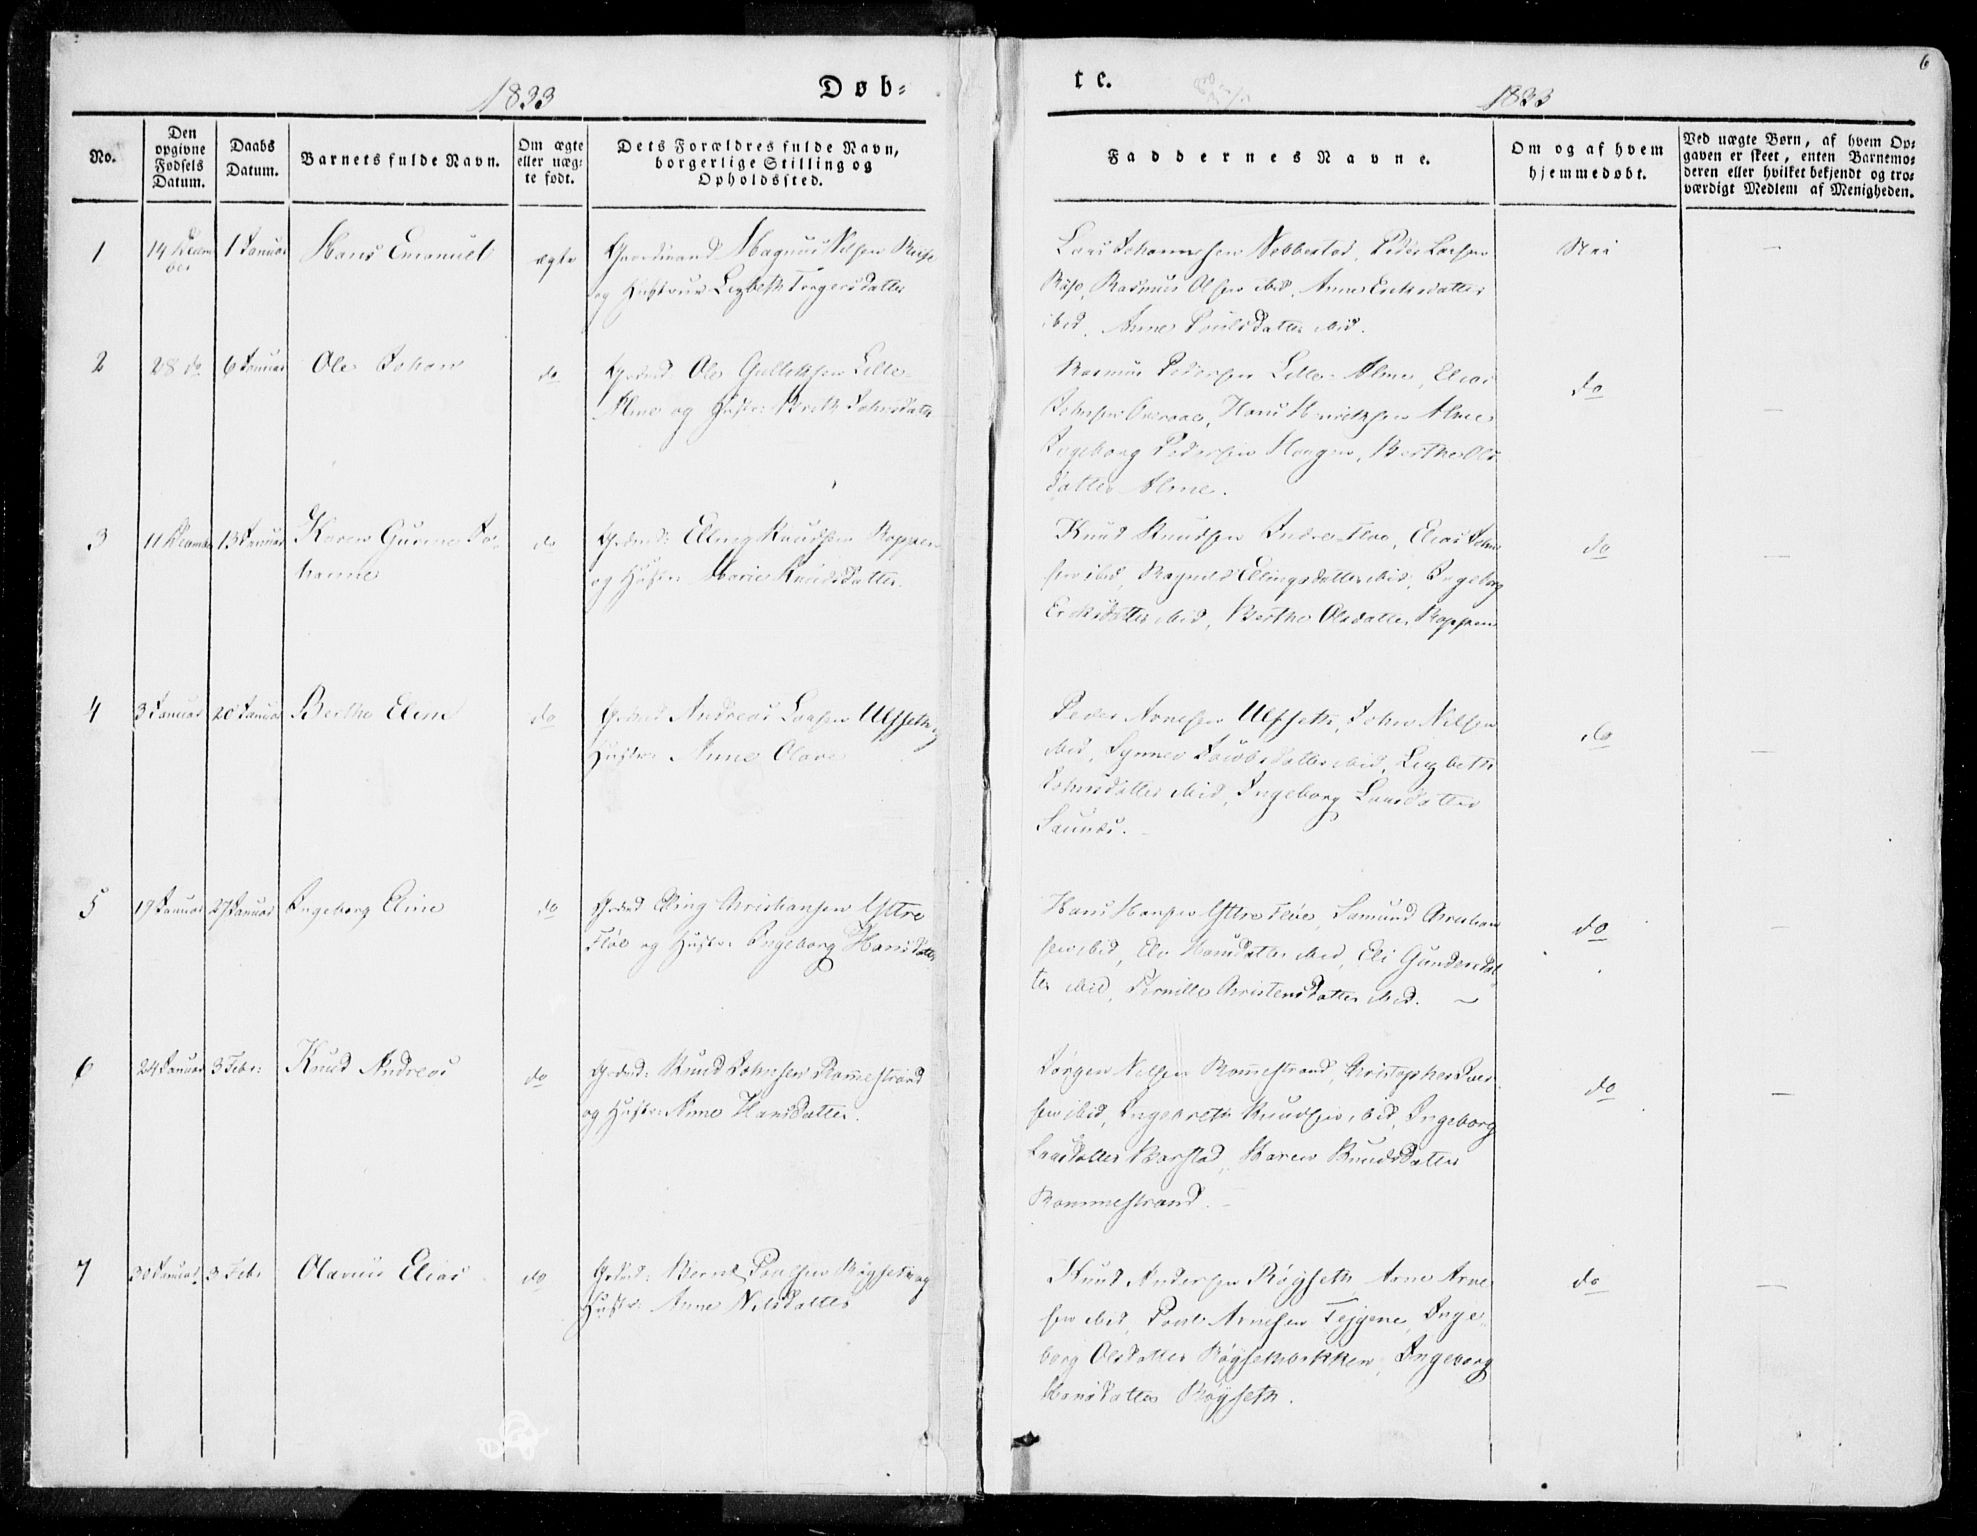 1833
Døb-
No.
Den opgivne Fødsels Datum.
Daabs Datum.
Barnets fulde Navn.
Om ægte eller uæg-te født.
Dets Forældres fulde Navn, borgerlige Stilling og Opholdssted.
1
14 Decem
ber
1 Januar
Hans Emanuel
ægte
Gaardmand Magnus Nilsen
og Hustrue Lizbeth Torgersdatter
2
28 do
6 Januar
Ole Johan
do
Ole Gulliksen Lille
Alme og Hustr: Berith Johnsdatter
3
11 Decemb
13 Januar
Karen Gurine Jo-
hanne
do
Grdmd: Elling Knudsen Roppen
og Hustr: Marie Knudsdatter
4
3 Januar
20 Januar
Berthe Eline
do
Grdmd Andreas Larsen Ulfseth og
Hustr: Anne Olave
5
19 Januar
27 Januar
Ingeborg Eline
do
Grdmd Elling Christiansen Yttre
Fløe og Hustr: Ingeborg Hansdatter
6
24 Januar
3 Febr:
Knud Andreas
do
Grdmd: Knud Johnsen Rommestrand
og Hustr: Anne Hansdatter.
7
30 Januar
3 Febr
Olavius Elias
do
Grdmd: Bernt Poulsen Røyseth og
Hustr: Anne Nilsdatter
te.
1833
6
Faddernes Navne.
Om og af hvem hjemmedøbt.
Ved uægte Børn, af hvem Op-gaven er skeet, enten Barnemo-deren eller hvilket bekjendt og tro-værdigt Medlem af Menigheden.
Lars Johannesen Nebbestad, Peder Larsen
Rasmus Olsen ibid, Anne Eriksdatter
ibid, Anne Poulsdatter ibid.
Nei
—
Rasmus Pedersen Lille Alme, Elias
Johnsen Hans Henriksen Alme
Ingeborg Pedersen Haugen, Berthe Ols
datter Alme.
do
—
Knud Knudsen Indre Fløe, Elias John
sen ibid, Ragnild Ellingsdatter ibid, Ingeborg
Eriksdatter ibid, Berthe Olsdatter Roppen
do
—
Peder Arnesen Ulfseth, John Nilsen
ibid, Synnev Jacobsdatter ibid, Lizbeth
Johnsdatter ibid, Ingeborg Larsdatter
Saunes.
do
—
Hans Hansen Yttre Fløe, Samund Christian
sen ibid, Hansdatter ibid, Eli Gundersdat
ter ibid, Pernille Christensdatter ibid.
do
—
Jørgen Nilsen Rommestrand, Christopher
sen ibid, Ingebreth Knudsen ibid, Ingeborg
Larsdatter Karen Knudsdatter
Rommestrand.
do
—
Knud Andersen Røyseth Arne Arne
sen ibid, Poul Arnesen Inge-
borg Olsdatter Røysethbakken, Ingeborg
Hansdatter Røyseth.
do
—